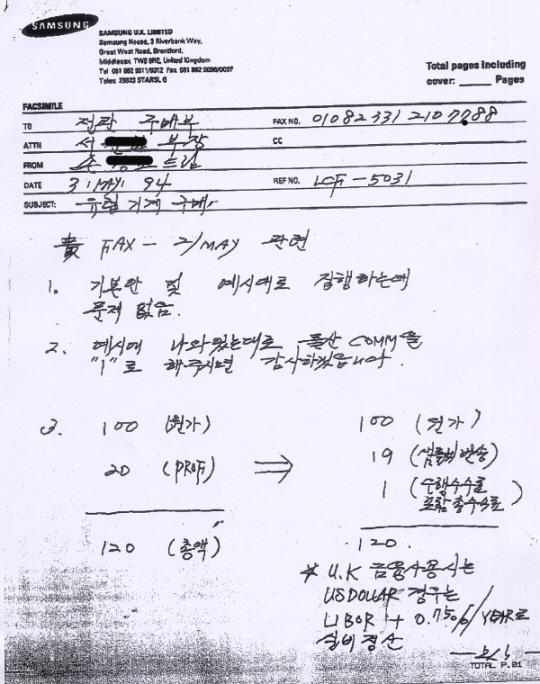 SAMSUNG
SAMSUNG U.K. LIMITED
Samsung House, 3 Riverbank Way,
Great West Road, Brentford,
Middlesex TW8 9RE, United Kingdom
Total pages including
cover: ______ Pages
FACSIMILE
TO 전관 구매부 FAX NO. 01082 331 210 7788
ATTN 서 부장 CC
FROM 손 드림
DATE 3 MAY 94 REF NO. LCF - 5031
SUBJECT: 유럽 기계 구매
貴 FAX - 2/MAY 관련
1. 기본안 및 예시대로 집행하는데
문제 없음.
2. 예시에 나와있는대로 물산 COMM을
"1"로 해주시면 감사하겠읍니다.
3. 100 (원가) 100 (원가)
20 (PROF) ⇒ 19 (샘플비 반송)
1 (은행수수료
포함 총수수료)
120 (총액) 120.
* U.K 금융사용시는
US DOLLAR 경우는
LIBOR + 0.75%/YEAR로
실비 정산
TOTAL P.01